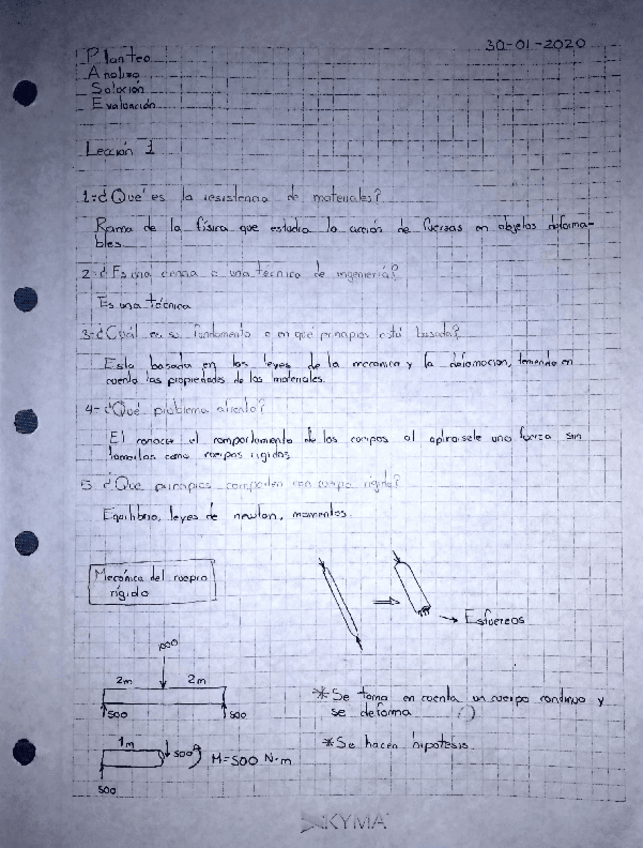 30-01-2020
Planteo
Analizo
Solución
Evaluación
Lección 1
1- ¿Qué es la resistencia de materiales?
Rama de la física que estudia la acción de fuerzas en objetos deforma-
bles.
2- ¿Es una ciencia o una técnica de ingeniería?
Es una técnica
3- ¿Cuál es su fundamento o en qué principios está basada?
Esta basada en las leyes de la mecanica y la deformacion, teniendo en
cuenta las propiedades de los materiales.
4- ¿Qué problema?
El conocer el comportamiento de los cuerpos al una fuerza sin
como cuerpos rigidos
5 ¿Que principios con cuerpo rigido?
Equilibrio, leyes de newton, momentos.
Mecánica del cuerpo
rígido
Esfuerzos
1000
2m 2m
500 500
* Se toma en cuenta un cuerpo continuo y
se deforma ( )
* Se hacen hipotesis.
1m
500 M=500 N·m
500
KYMA